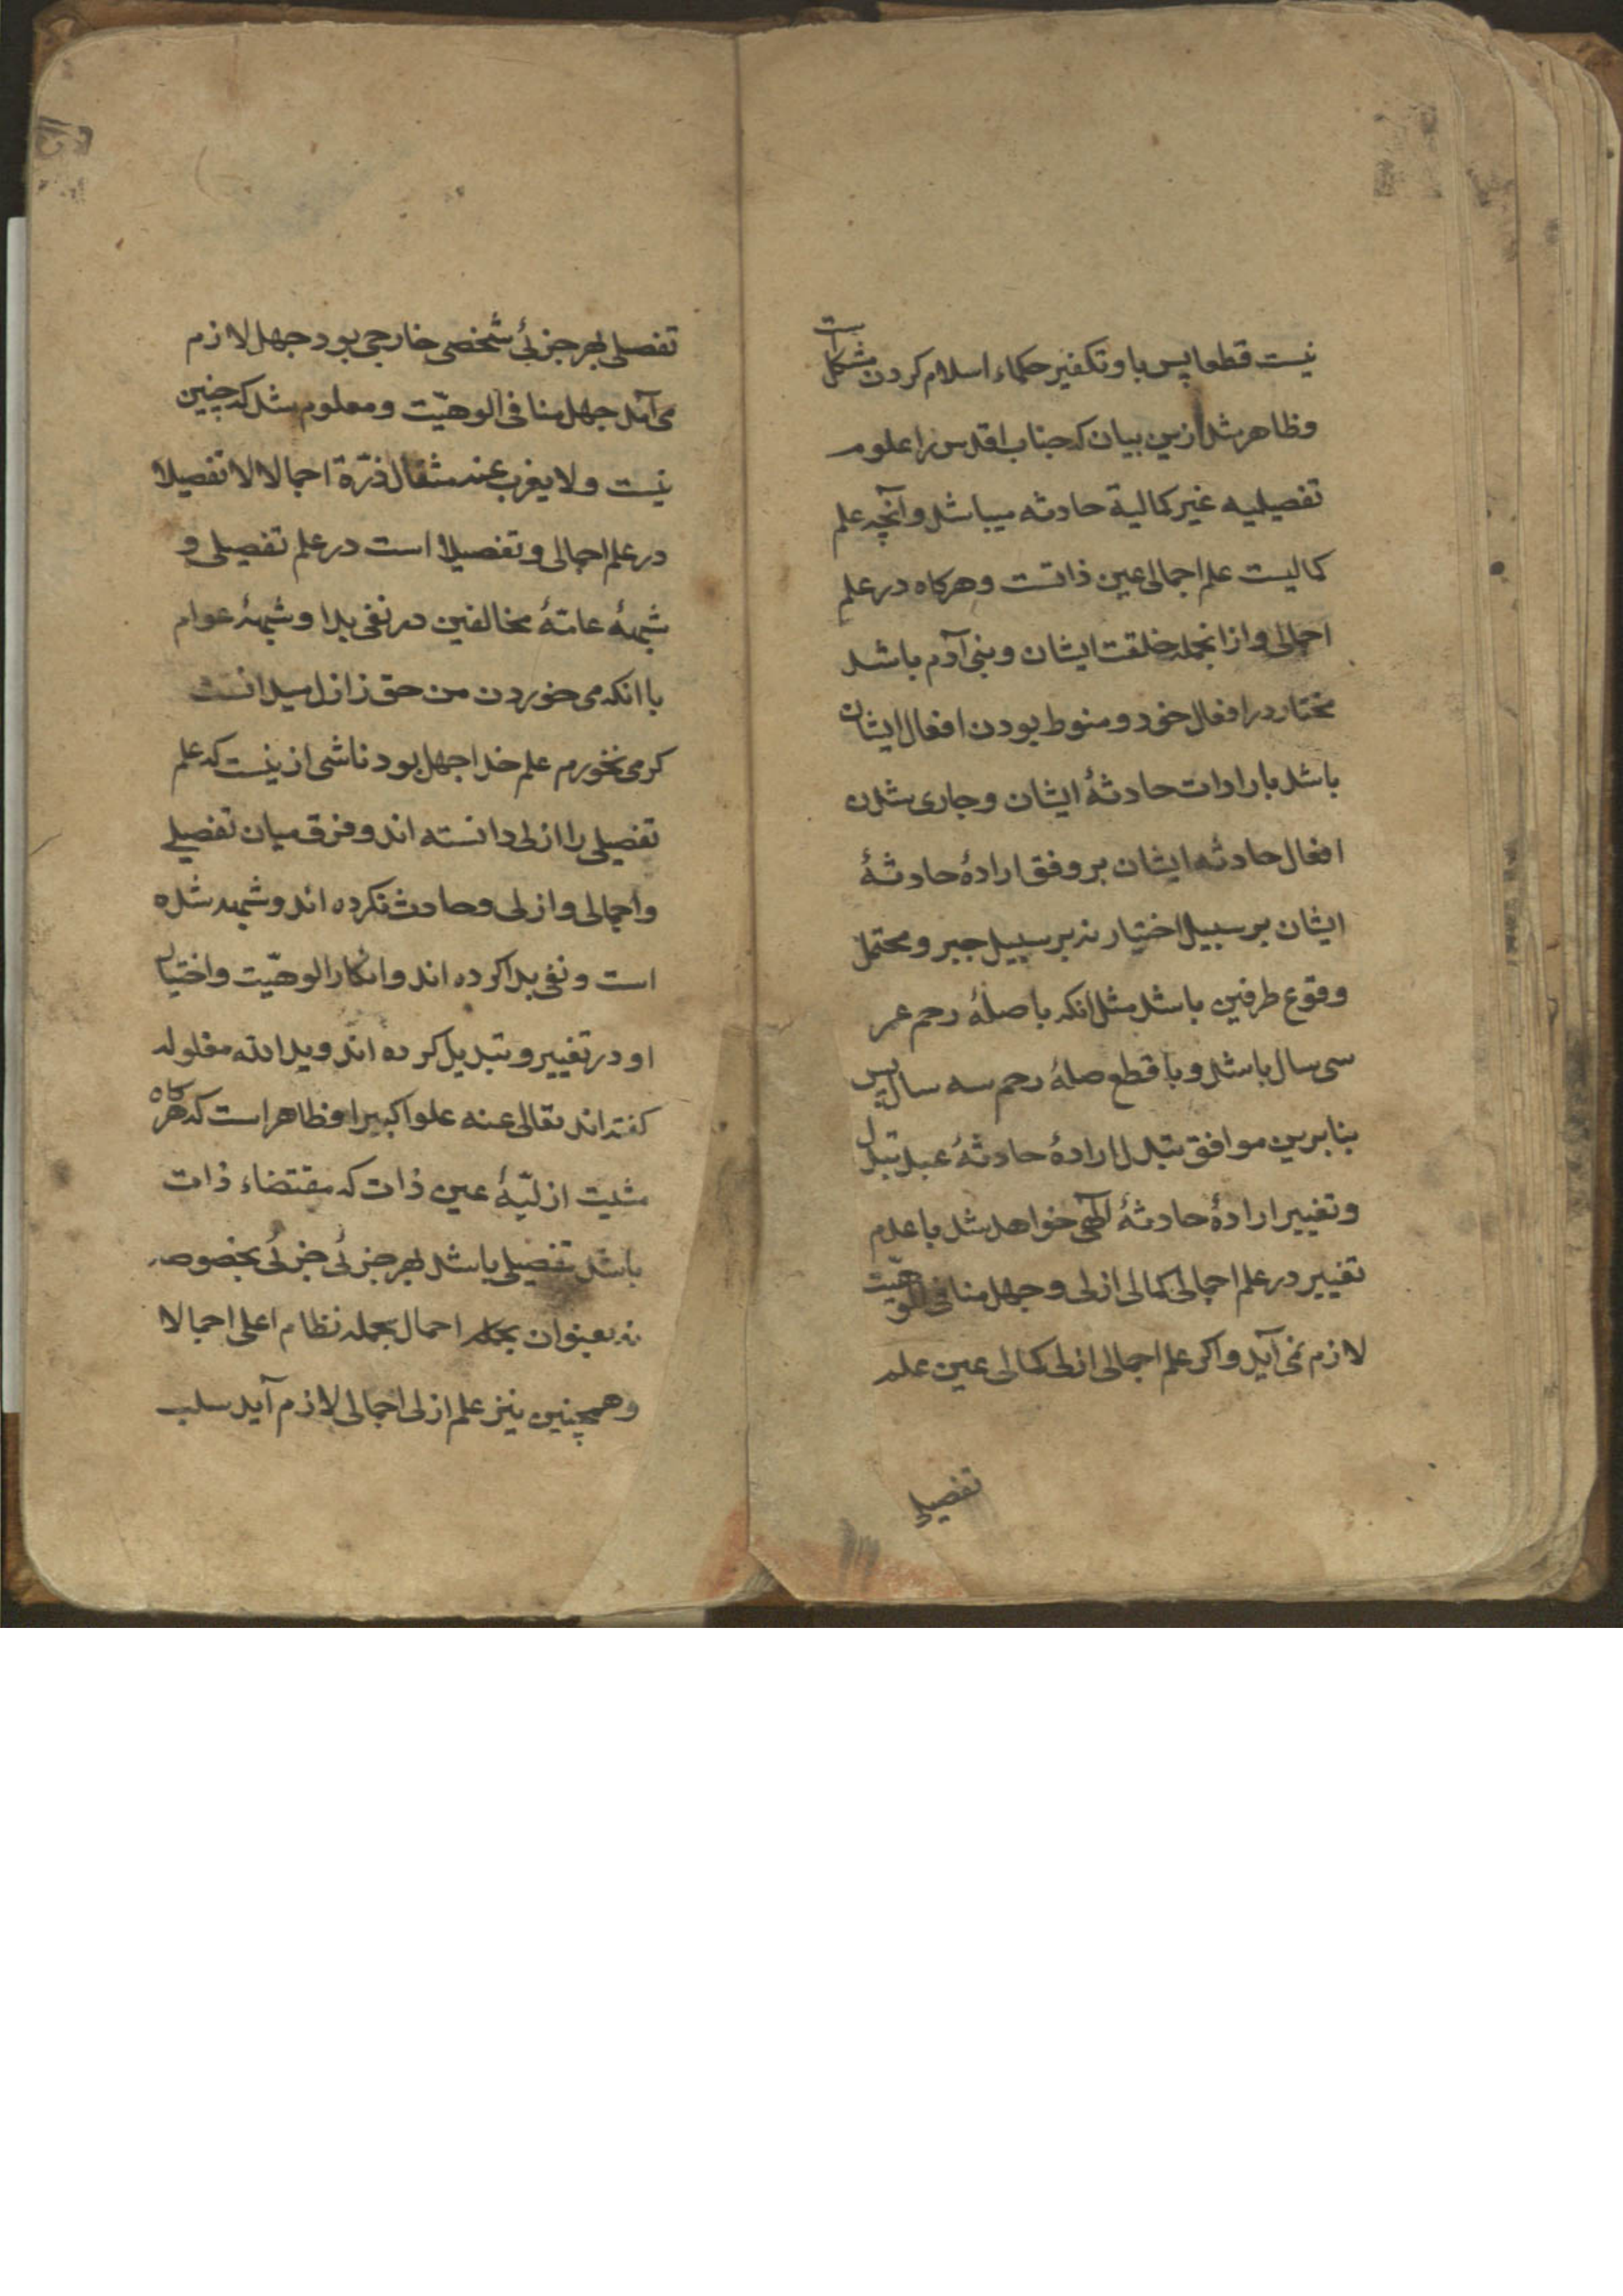 نیست قطعا پس با و تکفیر حکماء اسلام کردن مشکل است
و ظاهر شد ازین بیان که جناب اقدس را علوم
تفصیلیه غیر کمالیة حادثه میباشد و آنچه علم
کمالیست علم اجمالی عین ذاتست و هرکاه در علم
اجمالی و از انجمله خلقت ایشان و بنی آدم باشد
مختار در افعال خود و منوط بودن افعال ایشان
باشد بارادات حادثهٔ ایشان و جاری شدن
افعال حادثه ایشان بر وفق ارادهٔ حادثهٔ
ایشان بر سبیل اختیار نه بر سبیل جبر و محتمل
وقوع طرفین باشد مثل انکه با صلهٔ رحم عمر
سی سال باشد و با قطع صلهٔ رحم سه سال پس
بنابرین موافق تبدل ارادهٔ حادثهٔ عبد تبدل
و تغییر ارادهٔ حادثهٔ الٓهی خواهد شد با عدم
تغییر در علم اجمالی کمالی ازلی و جهل منافی الوهیّت
لازم نمی آید و اکر علم اجمالی ازلی کمالی عین علم
تفصیلی
تفصیلی بهر جزئی شخصی خارجی بود جهل لازم
می آمد جهل منافی الوهیّت و معلوم شد که چنین
نیست و لا یغرب عنه مثقال ذرّة اجمالا لا تفصیلا
در علم اجمالی و تفصیلا است در علم تفصیلی و
شبههٔ عامّهٔ مخالفین در نفی بدا و شبههٔ عوام
با انکه می خوردن من حق ز ازل میدانست
کر می نخورم علم خدا جهل بود ناشی ازینست که علم
تفصیلی را ازلی دانسته اند و فرق میان تفصیلے
و اجمالی و ازلی و حادث نکرده اند و شبهه شده
است و نفی بدا کرده اند و انکار الوهیّت و اختیار
او در تغییر و تبدیل کرده اند و ید الله مغلوله
کفته اند تعالی عنه علوا کبیرا و ظاهر است که هرکاه
مشیت ازلیّهٔ عین ذات که مقتضاء ذات
باشد تفصیلی باشد بهر جزئی جزئی بخصوصه
نه بعنوان اجمال بجمله نظام اعلی اجمالا
و همچنین نیز علم ازلی اجمالی لازم آید سلب